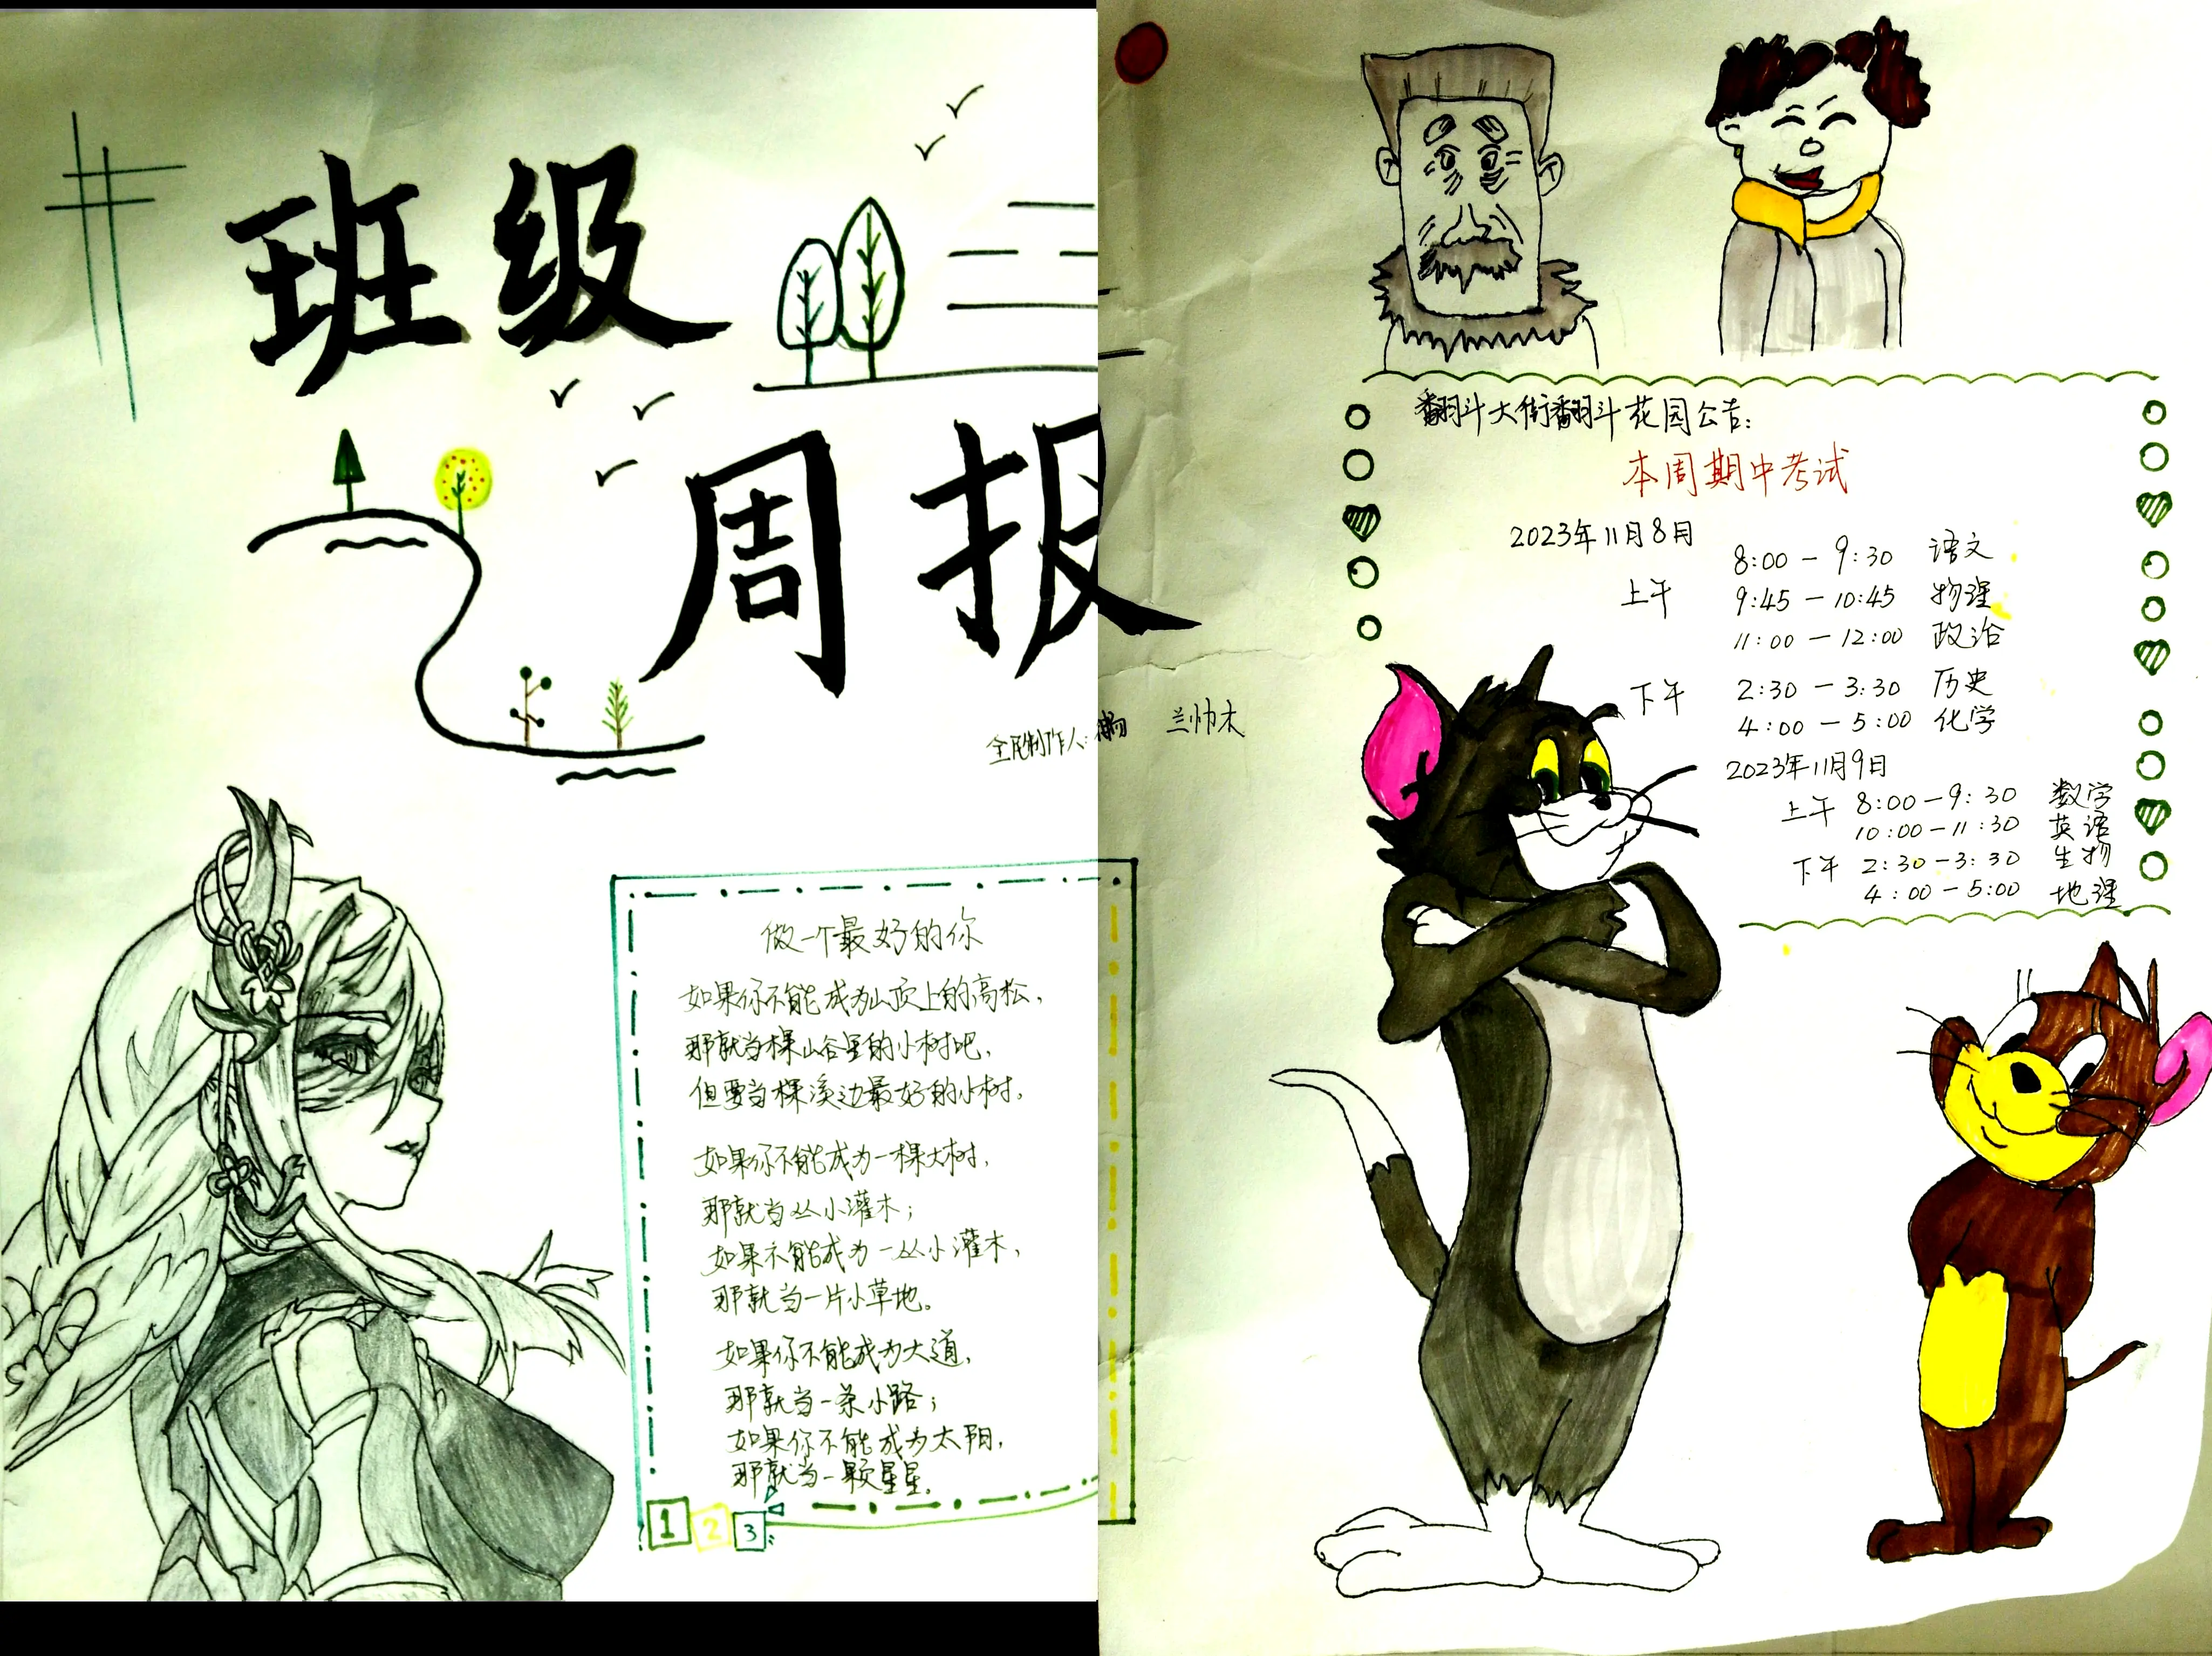 班级
周报
全民制作人:
兰帅木
做一个最好的你
如果你不能成为山顶上的高松,
那就当棵山谷里的小树吧,
但要当棵溪边最好的小树,
如果你不能成为一棵大树,
那就当丛小灌木;
如果不能成为一丛小灌木,
那就当一片小草地。
如果你不能成为大道,
那就当一条小路;
如果你不能成为太阳,
那就当一颗星星。
1 2 3
翻斗大街翻斗花园公告:
本周期中考试
2023年11月8月
上午
8:00 — 9:30 语文
9:45 — 10:45 物理
11:00 — 12:00 政治
下午
2:30 — 3:30 历史
4:00 — 5:00 化学
2023年11月9日
上午 8:00 — 9:30 数学
10:00 — 11:30 英语
下午 2:30 — 3:30 生物
4:00 — 5:00 地理